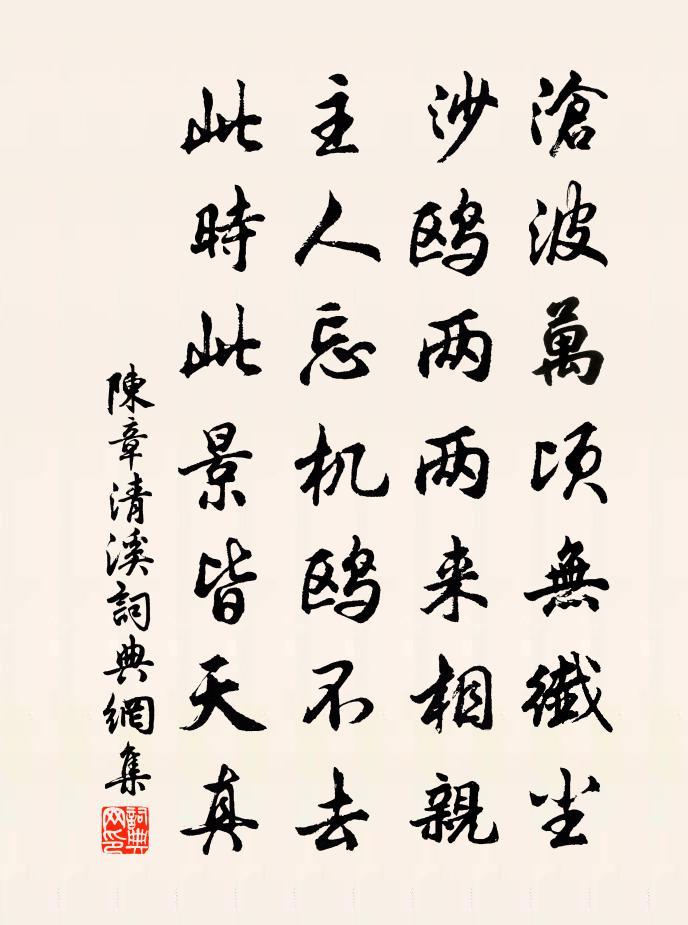 滄波萬頃無纖尘
沙鸥两两来相親
主人忘机鸥不去
此時此景皆天真
陳章清溪詞典網集
詞典网印